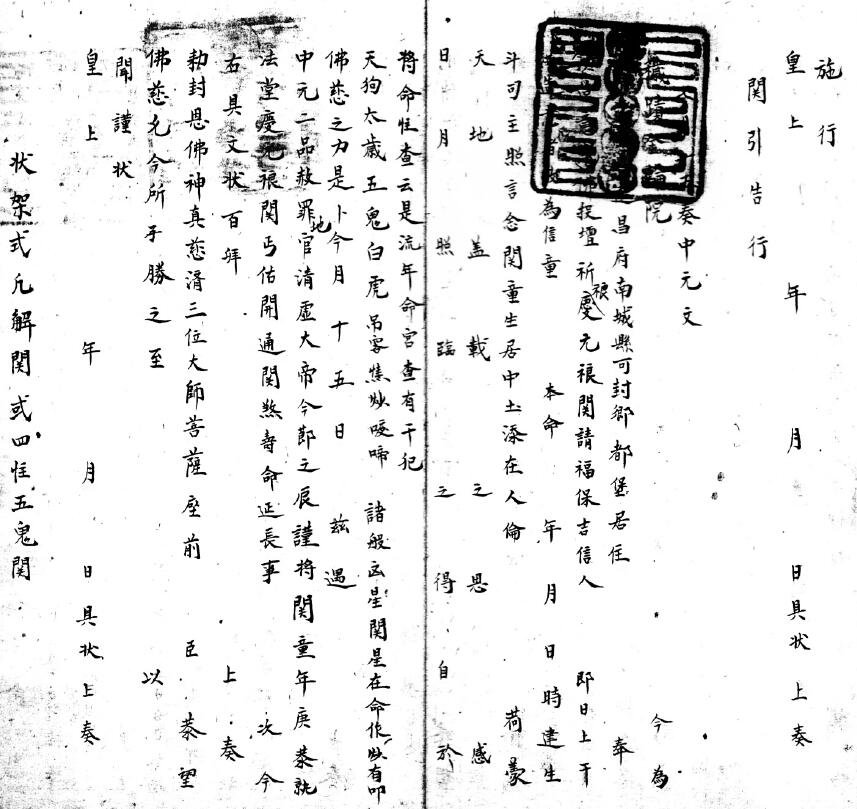 施行
皇上 年 月 日具狀上奏
関引告行
奏中元文
院 今為
昌府南城縣可封鄉都堡居住 奉
佛投壇祈禳慶元禳関請福保吉信人 即日上干
為信童 本命 年 月 日 時建生
斗司主照言念関童生居中土添在人倫 荷蒙
天地蓋載之恩 感
日月照臨之得 自於
將命怔查云是流年命宮查有干犯
天狗太歲五鬼白虎吊客 諸般凶星関星在命作 有叩
佛慈之力是卜今月十五日 兹遇
中元二品赦罪地官清虛大帝今莭之辰謹將関童年庚恭就
法堂慶元禳関丐佑開通関煞壽命延長事 次今
右具文狀百拜 上奏
勅封恩佛神真慈濟三位大師菩薩座前 臣 恭望
佛慈允今所手勝之至 以
聞謹狀
皇上 年 月 日具狀上奏
狀架式凡解関或四怔五鬼関